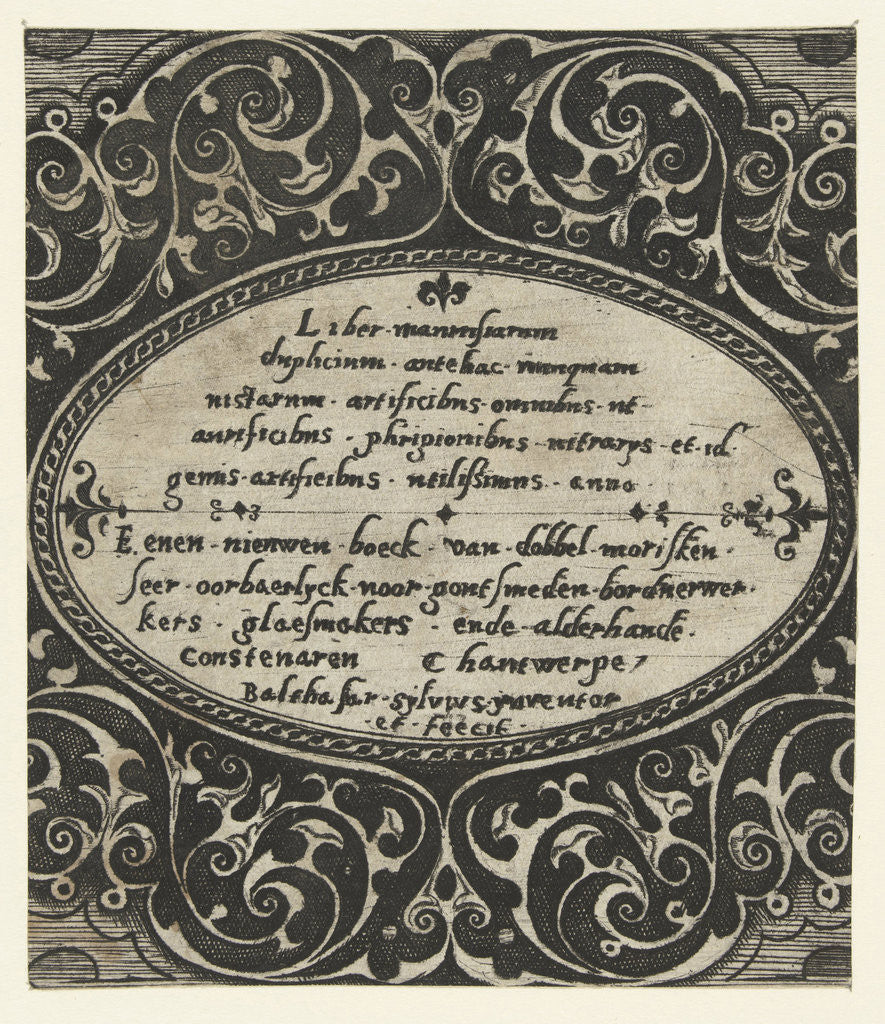 Liber · maurusiarum
duplicium · antehac · nunquam
uistarum · artificibus · omnibus · ut
aurificibus · phrigionibus · uitrarys · et · id
genus · artificibus · utilissimus · anno
Eenen · nieuwen · boeck · van · dobbel · morisken ·
seer · oorbaerlyck · uoor · goutsmeden · borduerwer ·
kers · glaesmakers · ende · alderhande ·
constenaren Thantwerpe
Balthasar · sylvius · ynventor
· et · feecit ·